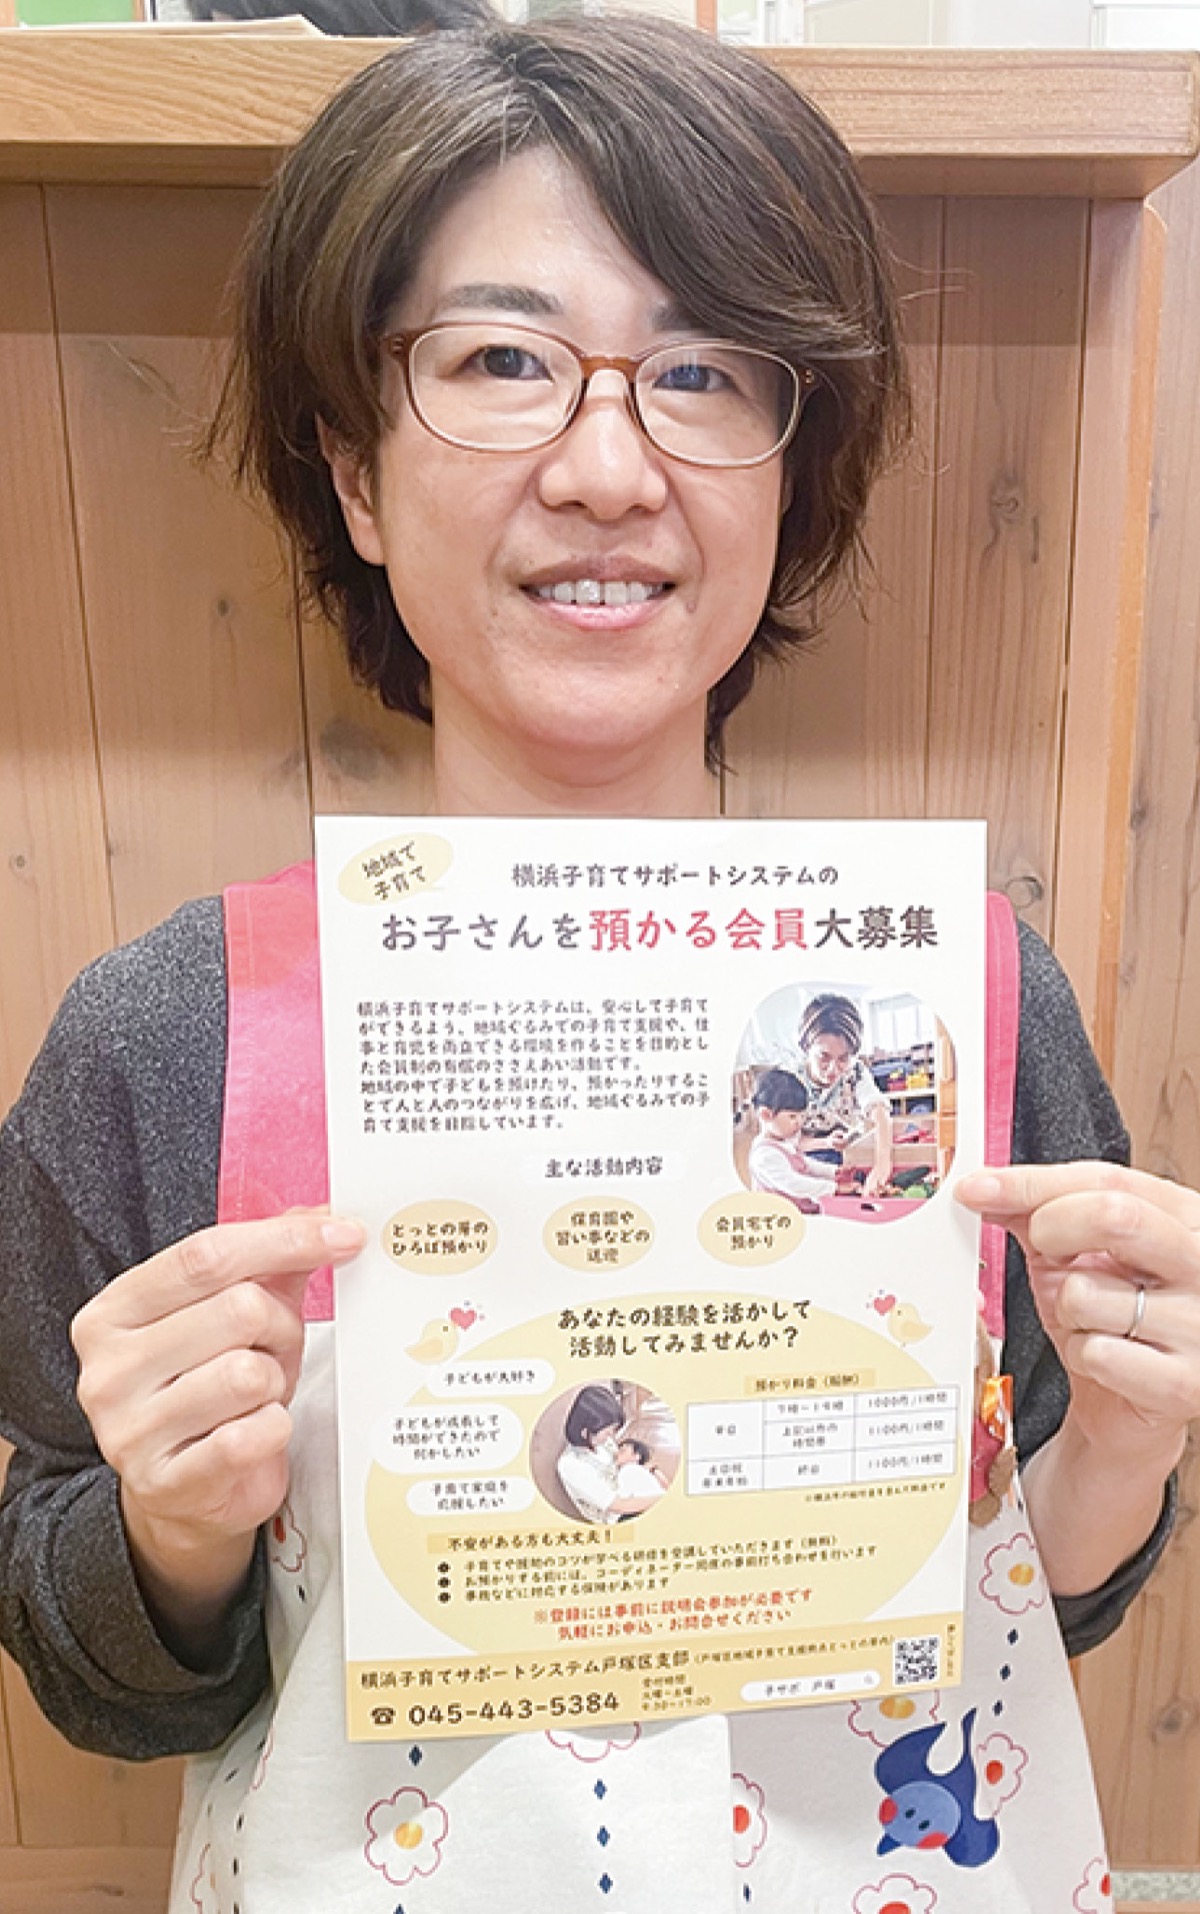 地域で
子育て
横浜子育てサポートシステムの
お子さんを預かる会員大募集
横浜子育てサポートシステムは、安心して子育て
ができるよう、地域ぐるみでの子育て支援や、仕
事と育児を両立できる環境を作ることを目的とし
た会員制の有償のささえあい活動です。
地域の中で子どもを預けたり、預かったりするこ
とで人と人のつながりを広げ、地域ぐるみでの子
育て支援を目指しています。
主な活動内容
とっとの芽の
ひろば預かり
保育園や
習い事などの
送迎
会員宅での
預かり
あなたの経験を活かして
活動してみませんか？
子どもが大好き
子どもが成長して
時間ができたので
何かしたい
子育て家庭を
応援したい
預かり料金（報酬）
平日 7時～19時 1000円/1時間
上記以外の
時間帯 1100円/1時間
土日祝
年末年始 終日 1100円/1時間
不安がある方も大丈夫！
● 子育てや援助のコツが学べる研修を受講していただきます（無料）
● お預かりする前には、コーディネーター同席の事前打ち合わせを行います
● 事故などに対応する保険があります
※登録には事前に説明会参加が必要です
気軽にお申込・お問合せください
横浜子育てサポートシステム戸塚区支部（戸塚区地域子育て支援拠点とっとの芽内）
☎ 045-443-5384
受付時間
火曜～土曜
9:30～17:00
子サポ 戸塚